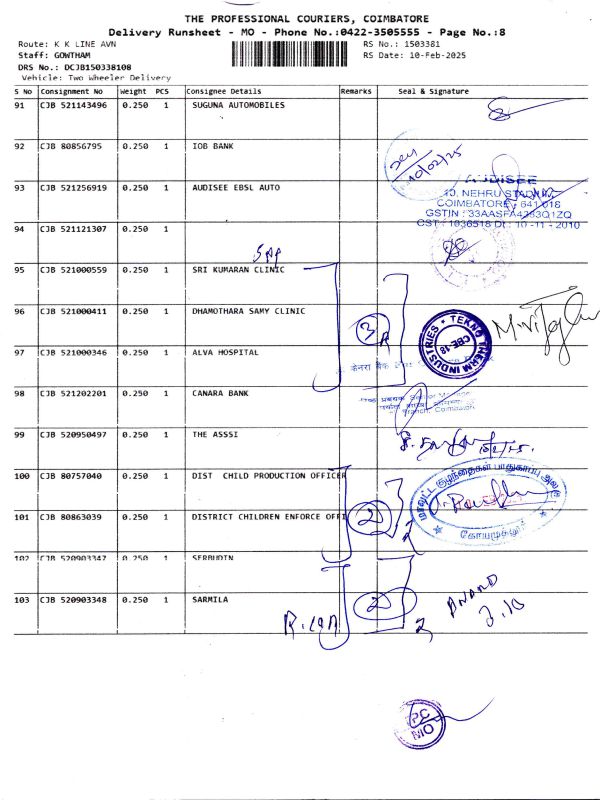 THE PROFESSIONAL COURIERS, COIMBATORE
Delivery Runsheet - MO - Phone No.:0422-3505555 - Page No.:8
Route: K K LINE AVN RS No.: 1503381
Staff: GOWTHAM RS Date: 10-Feb-2025
DRS No.: DCJB150338108
Vehicle: Two Wheeler Delivery
S No Consignment No Weight PCS Consignee Details Remarks Seal & Signature
91 CJB 521143496 0.250 1 SUGUNA AUTOMOBILES
92 CJB 80856795 0.250 1 IOB BANK
10/02/25
93 CJB 521256919 0.250 1 AUDISEE EBSL AUTO
AUDISEE
10, NEHRU STADIUM,
COIMBATORE - 641 018
GSTIN : 33AASFA4283Q1ZQ
CST : 1036518 Dt : 10 -11 - 2010
94 CJB 521121307 0.250 1
95 CJB 521000559 0.250 1 SRI KUMARAN CLINIC
96 CJB 521000411 0.250 1 DHAMOTHARA SAMY CLINIC
3
TEKNO THERM INDUSTRIES
CBE-18
97 CJB 521000346 0.250 1 ALVA HOSPITAL
केनरा बैंक
98 CJB 521202201 0.250 1 CANARA BANK
Branch, Coimbatore
99 CJB 520950497 0.250 1 THE ASSSI
10/2/25.
100 CJB 80757040 0.250 1 DIST CHILD PRODUCTION OFFICER
மாவட்ட குழந்தைகள் பாதுகாப்பு அலகு
கோயமுத்தூர்
101 CJB 80863039 0.250 1 DISTRICT CHILDREN ENFORCE OFFI
2
102 CJB 520903347 0.250 1 SERBUDIN
103 CJB 520903348 0.250 1 SARMILA
2
ANAND
3.10
PC
MO